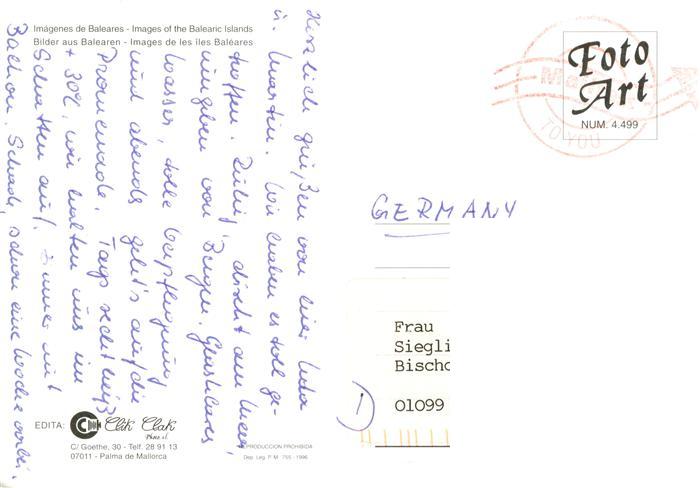 Imágenes de Baleares - Images of the Balearic Islands
Bilder aus Balearen - Images de les îles Baléares
Herzlich grüßen von hier
u. Martin. Wir haben es toll ge-
troffen. Ruhig, direkt am Meer,
umgeben von Bergen. Glasklares
Wasser, tolle Verpflegung
und abends geht's auf die
Promenade. Tags recht heiß
+ 30°C, wir halten uns im
Schatten auf. Zimmer mit
Balkon. Schade, schon eine Woche vorbei.
EDITA:
Clik Clak
Photo sl.
C/ Goethe, 30 - Telf. 28 91 13
07011 - Palma de Mallorca
REPRODUCCION PROHIBIDA
Dep. Leg. P M 755 - 1996
Foto
Art
NUM. 4.499
TO YOU
GERMANY
Frau
Siegli
Bischo
01099
1)